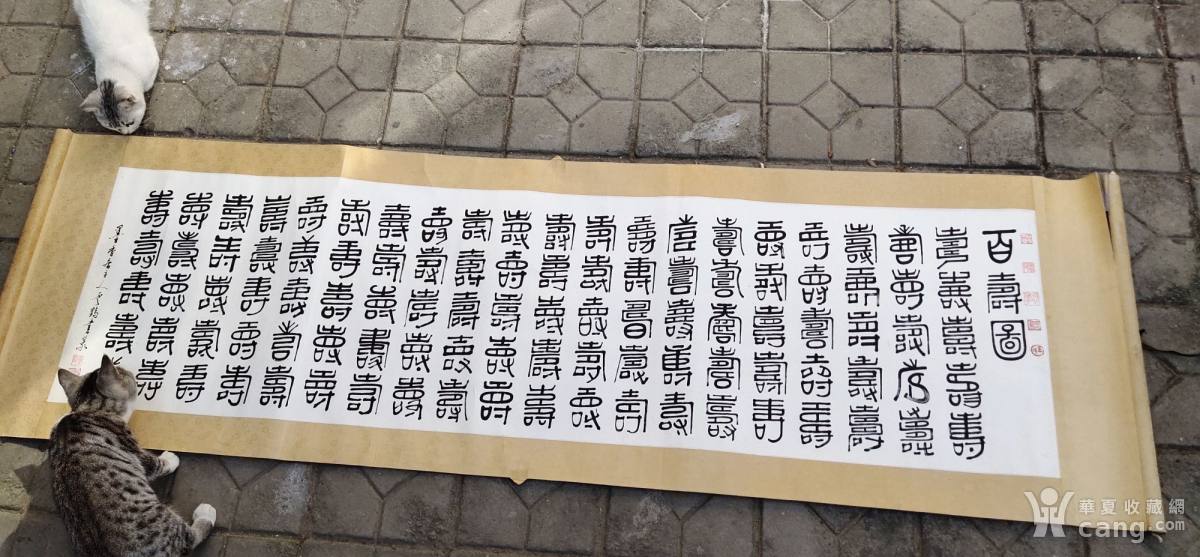 百壽圖
壽壽壽壽壽
壽壽壽壽壽
壽壽壽壽壽
壽壽壽壽壽
壽壽壽壽壽
壽壽壽壽壽
壽壽壽壽壽
壽壽壽壽壽
壽壽壽壽壽
壽壽壽壽壽
壽壽壽壽壽
壽壽壽壽壽
壽壽壽壽壽
壽壽壽壽壽
壽壽壽壽壽
壽壽壽壽壽
壽壽壽壽壽
壽壽壽壽壽
壽壽壽壽壽
壽壽壽壽壽
華夏收藏網
cang.com